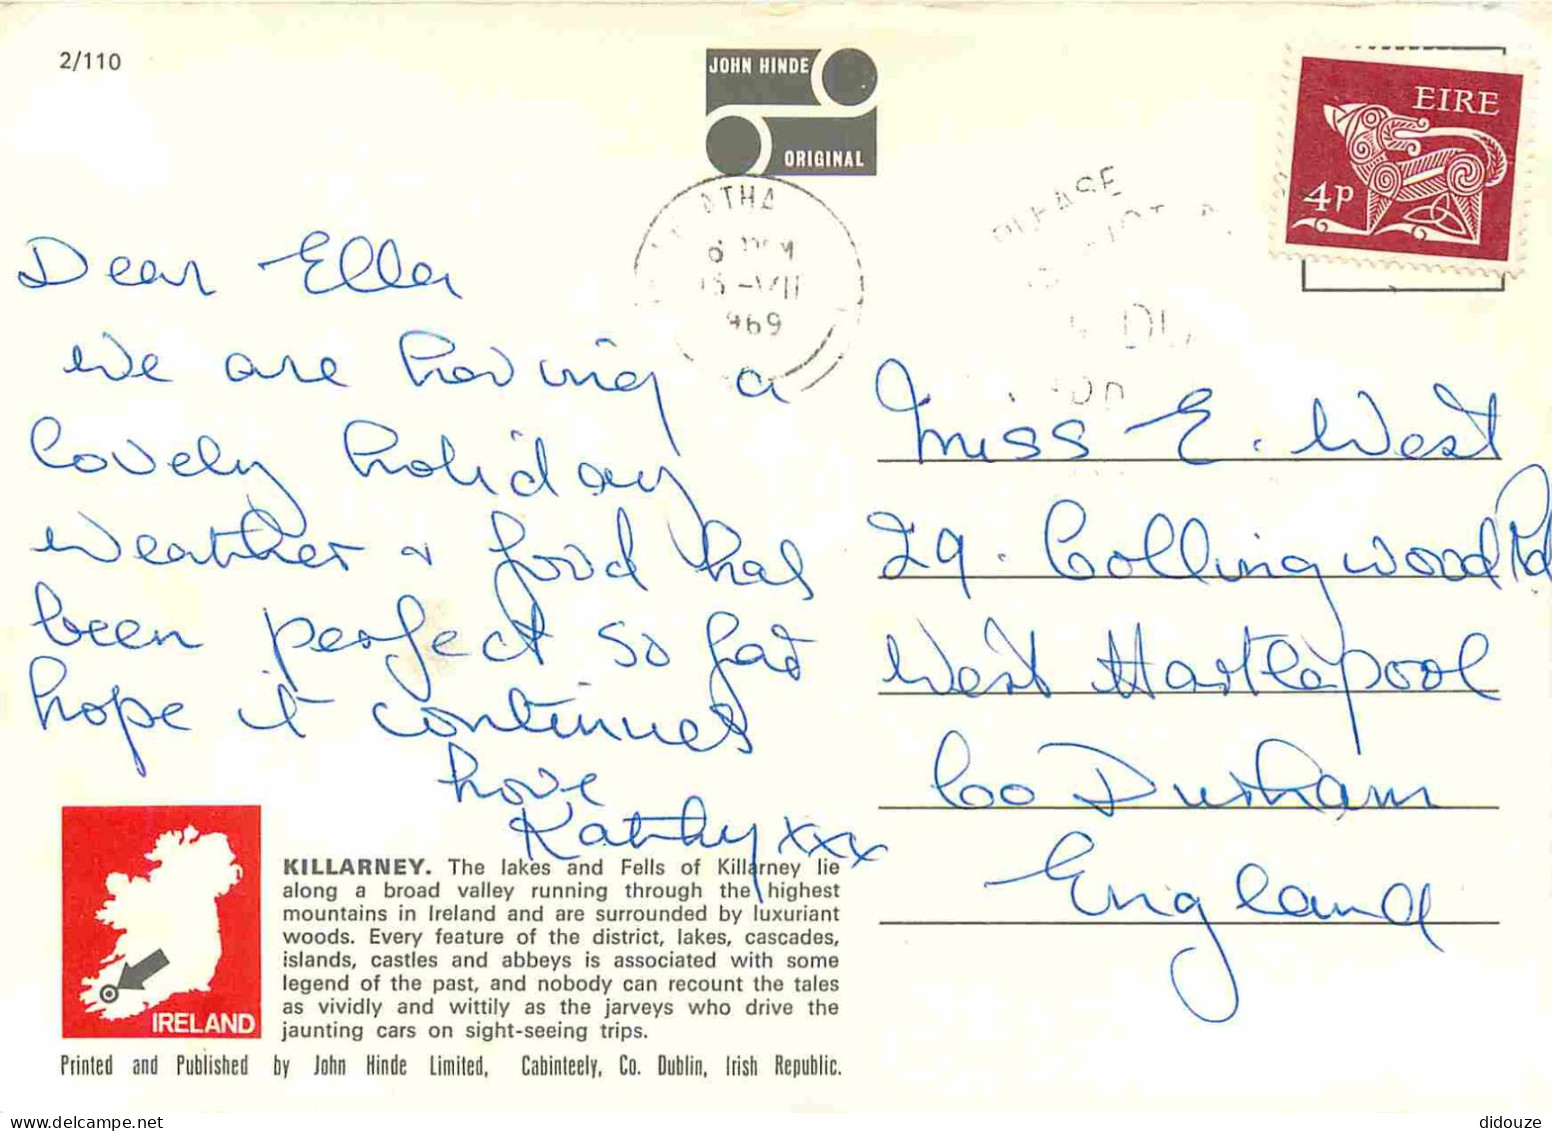 2/110
JOHN HINDE
ORIGINAL
EIRE
4p
PLEASE
969
Dear Ella
We are having a
lovely holiday
weather + food has
been perfect so far
hope it continues
Love
Kathy xxx
Miss E. West
29. Collingwood Rd
West Hartlepool
Co Durham
England
IRELAND
KILLARNEY. The lakes and Fells of Killarney lie
along a broad valley running through the highest
mountains in Ireland and are surrounded by luxuriant
woods. Every feature of the district, lakes, cascades,
islands, castles and abbeys is associated with some
legend of the past, and nobody can recount the tales
as vividly and wittily as the jarveys who drive the
jaunting cars on sight-seeing trips.
Printed and Published by John Hinde Limited, Cabinteely, Co. Dublin, Irish Republic.
didouze